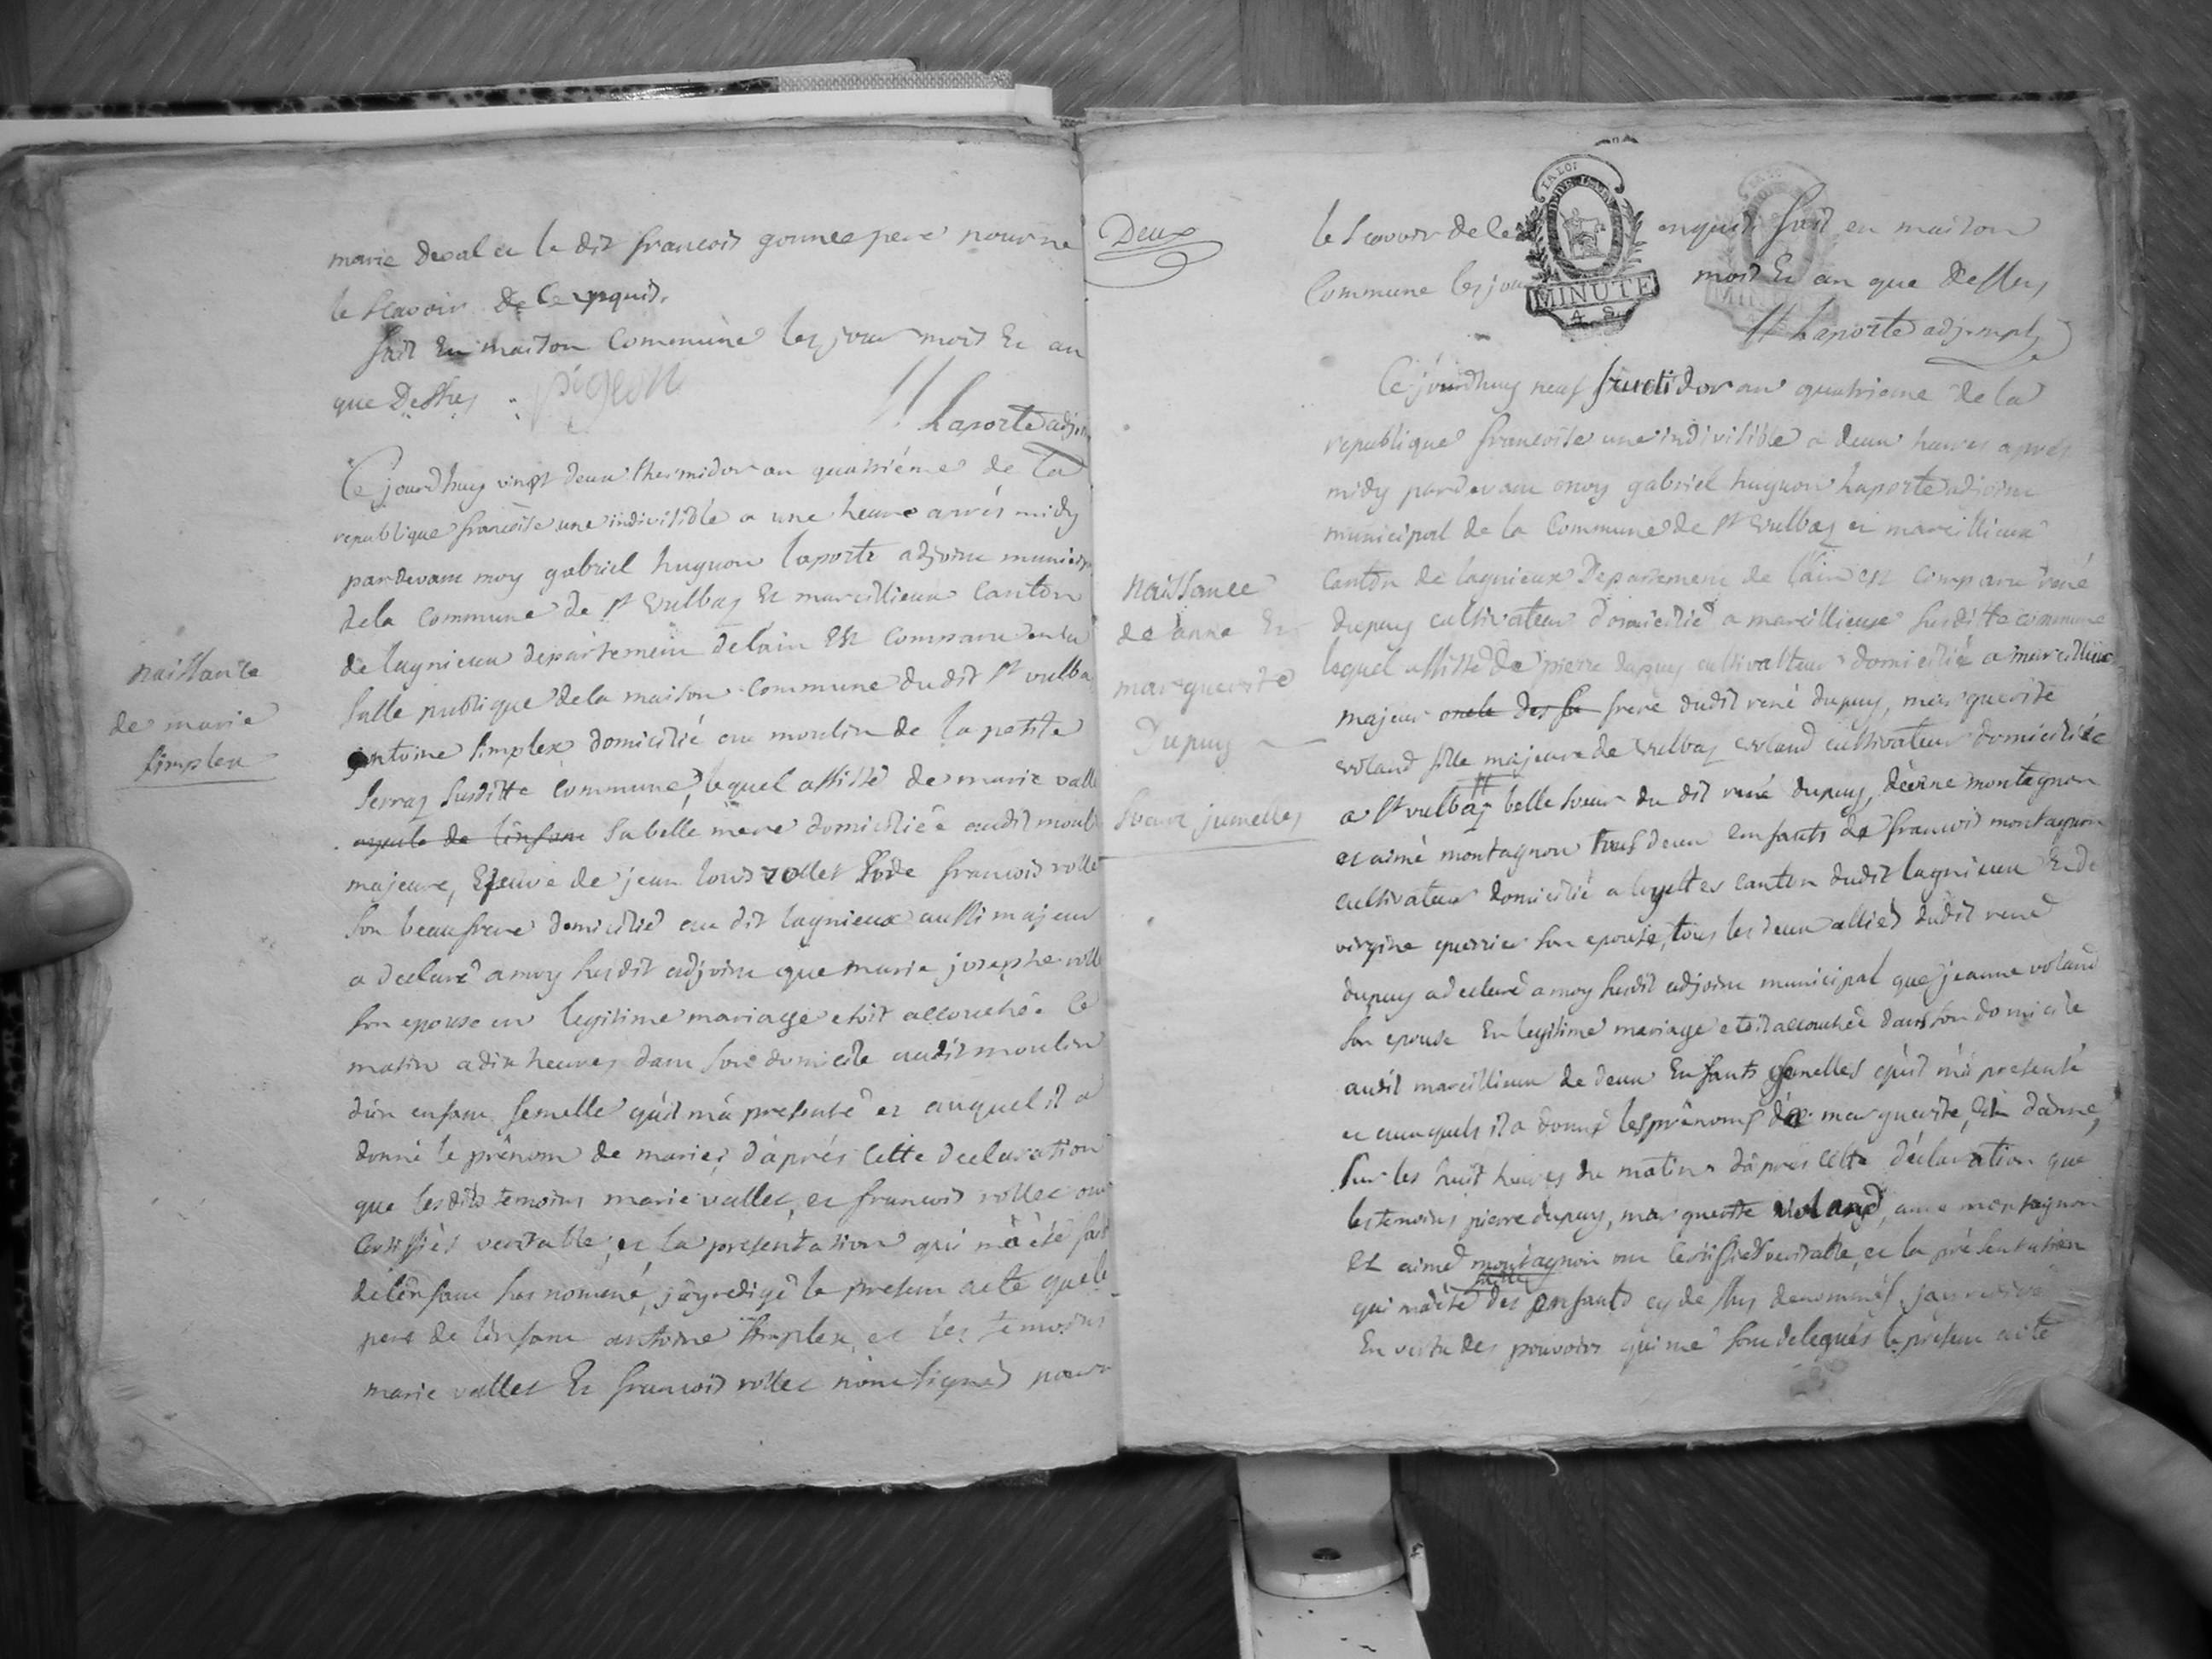 marie deval et le dit francois gonnee pere pour ne
le scavoir de ce enquis.
fait En maison Commune les jour mois Et an
que Dessus pigeon
h Laporte adjoint
naissance
de marie
simplex
Ce jourdhuy vingt deux thermidor an quatriéme de la
republique francoise une indivisible a une heure aprés midy
pardevant moy gabriel huguon laporte adjoint municipal
de la commune de st vulbaz Et marcillieux Canton
de lagnieux departement delain Est Comparu en la
salle publique dela maison commune dudit st vulba
antoine simplex domicilié au moulin de la petite
serraz susditte commune, lequel assisté de marie vallet
ayeule de lènfant sa belle mere domiciliée audit moulin
majeure, veuve de jean louis rollet Et de francois rollet
son beaufrere domicilié au dit lagnieux aussi majeur
a declaré a moy susdit adjoint que marie josephe rollet
son epouse en legitime mariage etoit accouchée ce
matin a dix heures dans son domicile audit moulin
d'ùn enfant femelle qùil mà presenté et auquel il a
donné le prénom de marie, dàprés Cette declaration
que lesdits temoins marie vallet, et francois rollet ont
Certifiés veritable, et la presentation qui mà été fait
de lènfant sus nommé, jày redigé le present acte que le
pere de lènfant antoine simplex et les temoins
marie vallet Et francois rollet nònt signés pour ne
Deux
le scavoir de ce enquis fait en maison
Commune les jour mois Et an que Dessus
LA LOI
MINUTE
4 S.
h Laporte adj. mpl
naissance
de anne Et
marguerite
Dupuy
soeurs jumelles
Ce jourdhuy neuf fructidor an quatrieme de la
republique francoise une indivisible a deux heures aprés
midy pardevant moy gabriel huguon laporte adjoint
municipal de la Commune de st vulbaz et marcillieux
canton de lagnieux Departement de làin est comparu rené
dupuy cultivateur domicilié a marcillieux susditte commune
lequel assisté de pierre dupuy cultivatteur domicilié a marcillieux
majeur oncle des fu frere dudit rené dupuy, marguerite
voland fille majeure de vulbaz voland cultivateur domiciliée
a st vulbaz belle soeur du dit rené dupuy, montagnon
et aimé montagnon tous deux enfants de francois montagnon
cultivateur domicilié a loyettes canton dudit lagnieux Et de
virgine querrier son epouse, tous les deux alliés dudit rené
dupuy a declaré a moy susdit adjoint municipal que jeanne voland
son epouse En legitime mariage etoit accouchée dans son domicile
audit marcillieux de deux Enfants femelles qùil mà presenté
et auxquels il a donné les prénoms de marguerite, Et dànne,
sur les huit heures du matin, dàprés cette déclaration que
les temoins pierre dupuy, marguerite voland, anne montagnon
et aimé montagnon ont certifiés veritable, et la présentation
qui mà été faitte des enfants cy dessus denommés, jay redigé
En vertu des pouvoirs qui me sont delegués le présent acte